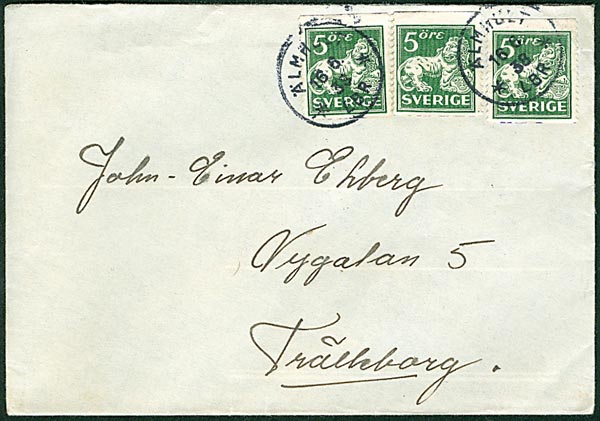 5 ÖRE
SVERIGE
5 ÖRE
SVERIGE
5 ÖRE
SVERIGE
ÄLMH
16 6
38
LBR
ÄLMHULT
16 6
38
LBR
John-Einar Ehberg
Nygatan 5
Trälleborg.